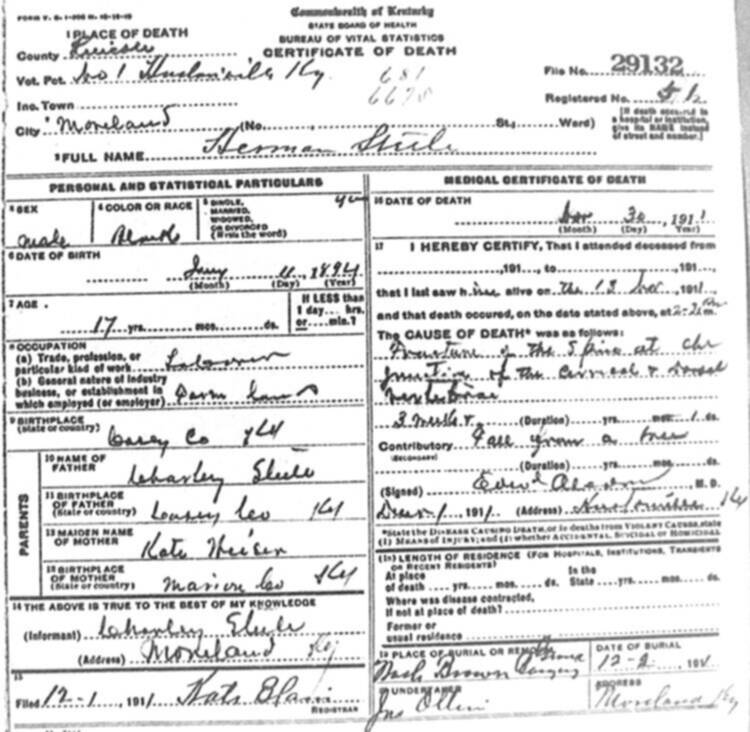 FORM V. S. 1-
Commonwealth of Kentucky
STATE BOARD OF HEALTH
BUREAU OF VITAL STATISTICS
CERTIFICATE OF DEATH
1 PLACE OF DEATH
County
Vot. Pct. No 1 Ky
681
667
File No. 29132
Inc. Town
Registered No.
City Moreland (No. St., Ward)
[If death occurred in a hospital or institution, give its NAME instead of street and number.]
2 FULL NAME Herman Steele
PERSONAL AND STATISTICAL PARTICULARS
3 SEX
Male
4 COLOR OR RACE
5 SINGLE, MARRIED, WIDOWED, OR DIVORCED (Write the word)
6 DATE OF BIRTH
11 1894
(Month) (Day) (Year)
7 AGE
17 yrs. mos. ds.
If LESS than 1 day... hrs. or... min.?
8 OCCUPATION
(a) Trade, profession, or particular kind of work
(b) General nature of industry business, or establishment in which employed (or employer)
9 BIRTHPLACE
(State or country) Casey Co Ky
PARENTS
10 NAME OF FATHER Charley Steele
11 BIRTHPLACE OF FATHER
(State or country) Casey Co Ky
12 MAIDEN NAME OF MOTHER Kate
13 BIRTHPLACE OF MOTHER
(State or country) Marion Co Ky
14 THE ABOVE IS TRUE TO THE BEST OF MY KNOWLEDGE
(Informant) Charley Steele
(Address) Moreland Ky
15
Filed 12-1, 1911 Kate
REGISTRAR
MEDICAL CERTIFICATE OF DEATH
16 DATE OF DEATH
Nov 30, 1911
(Month) (Day) (Year)
17 I HEREBY CERTIFY, That I attended deceased from
, 191 , to , 191 ,
that I last saw him alive on the 13 Nov, 1911
and that death occured, on the date stated above, at
The CAUSE OF DEATH* was as follows:
Fracture of the Spine at the
junction of the cervical & dorsal
vertebrae
3 weeks & (Duration) yrs. mos. 1 ds.
Contributory Fall from a tree
(SECONDARY)
(Duration) yrs. mos. ds.
(Signed) M. D.
1 1911 (Address) Ky
*State the DISEASE CAUSING DEATH, or in deaths from VIOLENT CAUSES, state (1) MEANS OF INJURY; and (2) whether ACCIDENTAL, SUICIDAL or HOMICIDAL
18 LENGTH OF RESIDENCE (FOR HOSPITALS, INSTITUTIONS, TRANSIENTS OR RECENT RESIDENTS)
At place of death yrs. mos. ds. In the State yrs. mos. ds.
Where was disease contracted,
If not at place of death?
Former or usual residence
19 PLACE OF BURIAL OR REMOVAL
Brown
DATE OF BURIAL
12-2, 1911
20 UNDERTAKER
Jno
ADDRESS
Moreland Ky